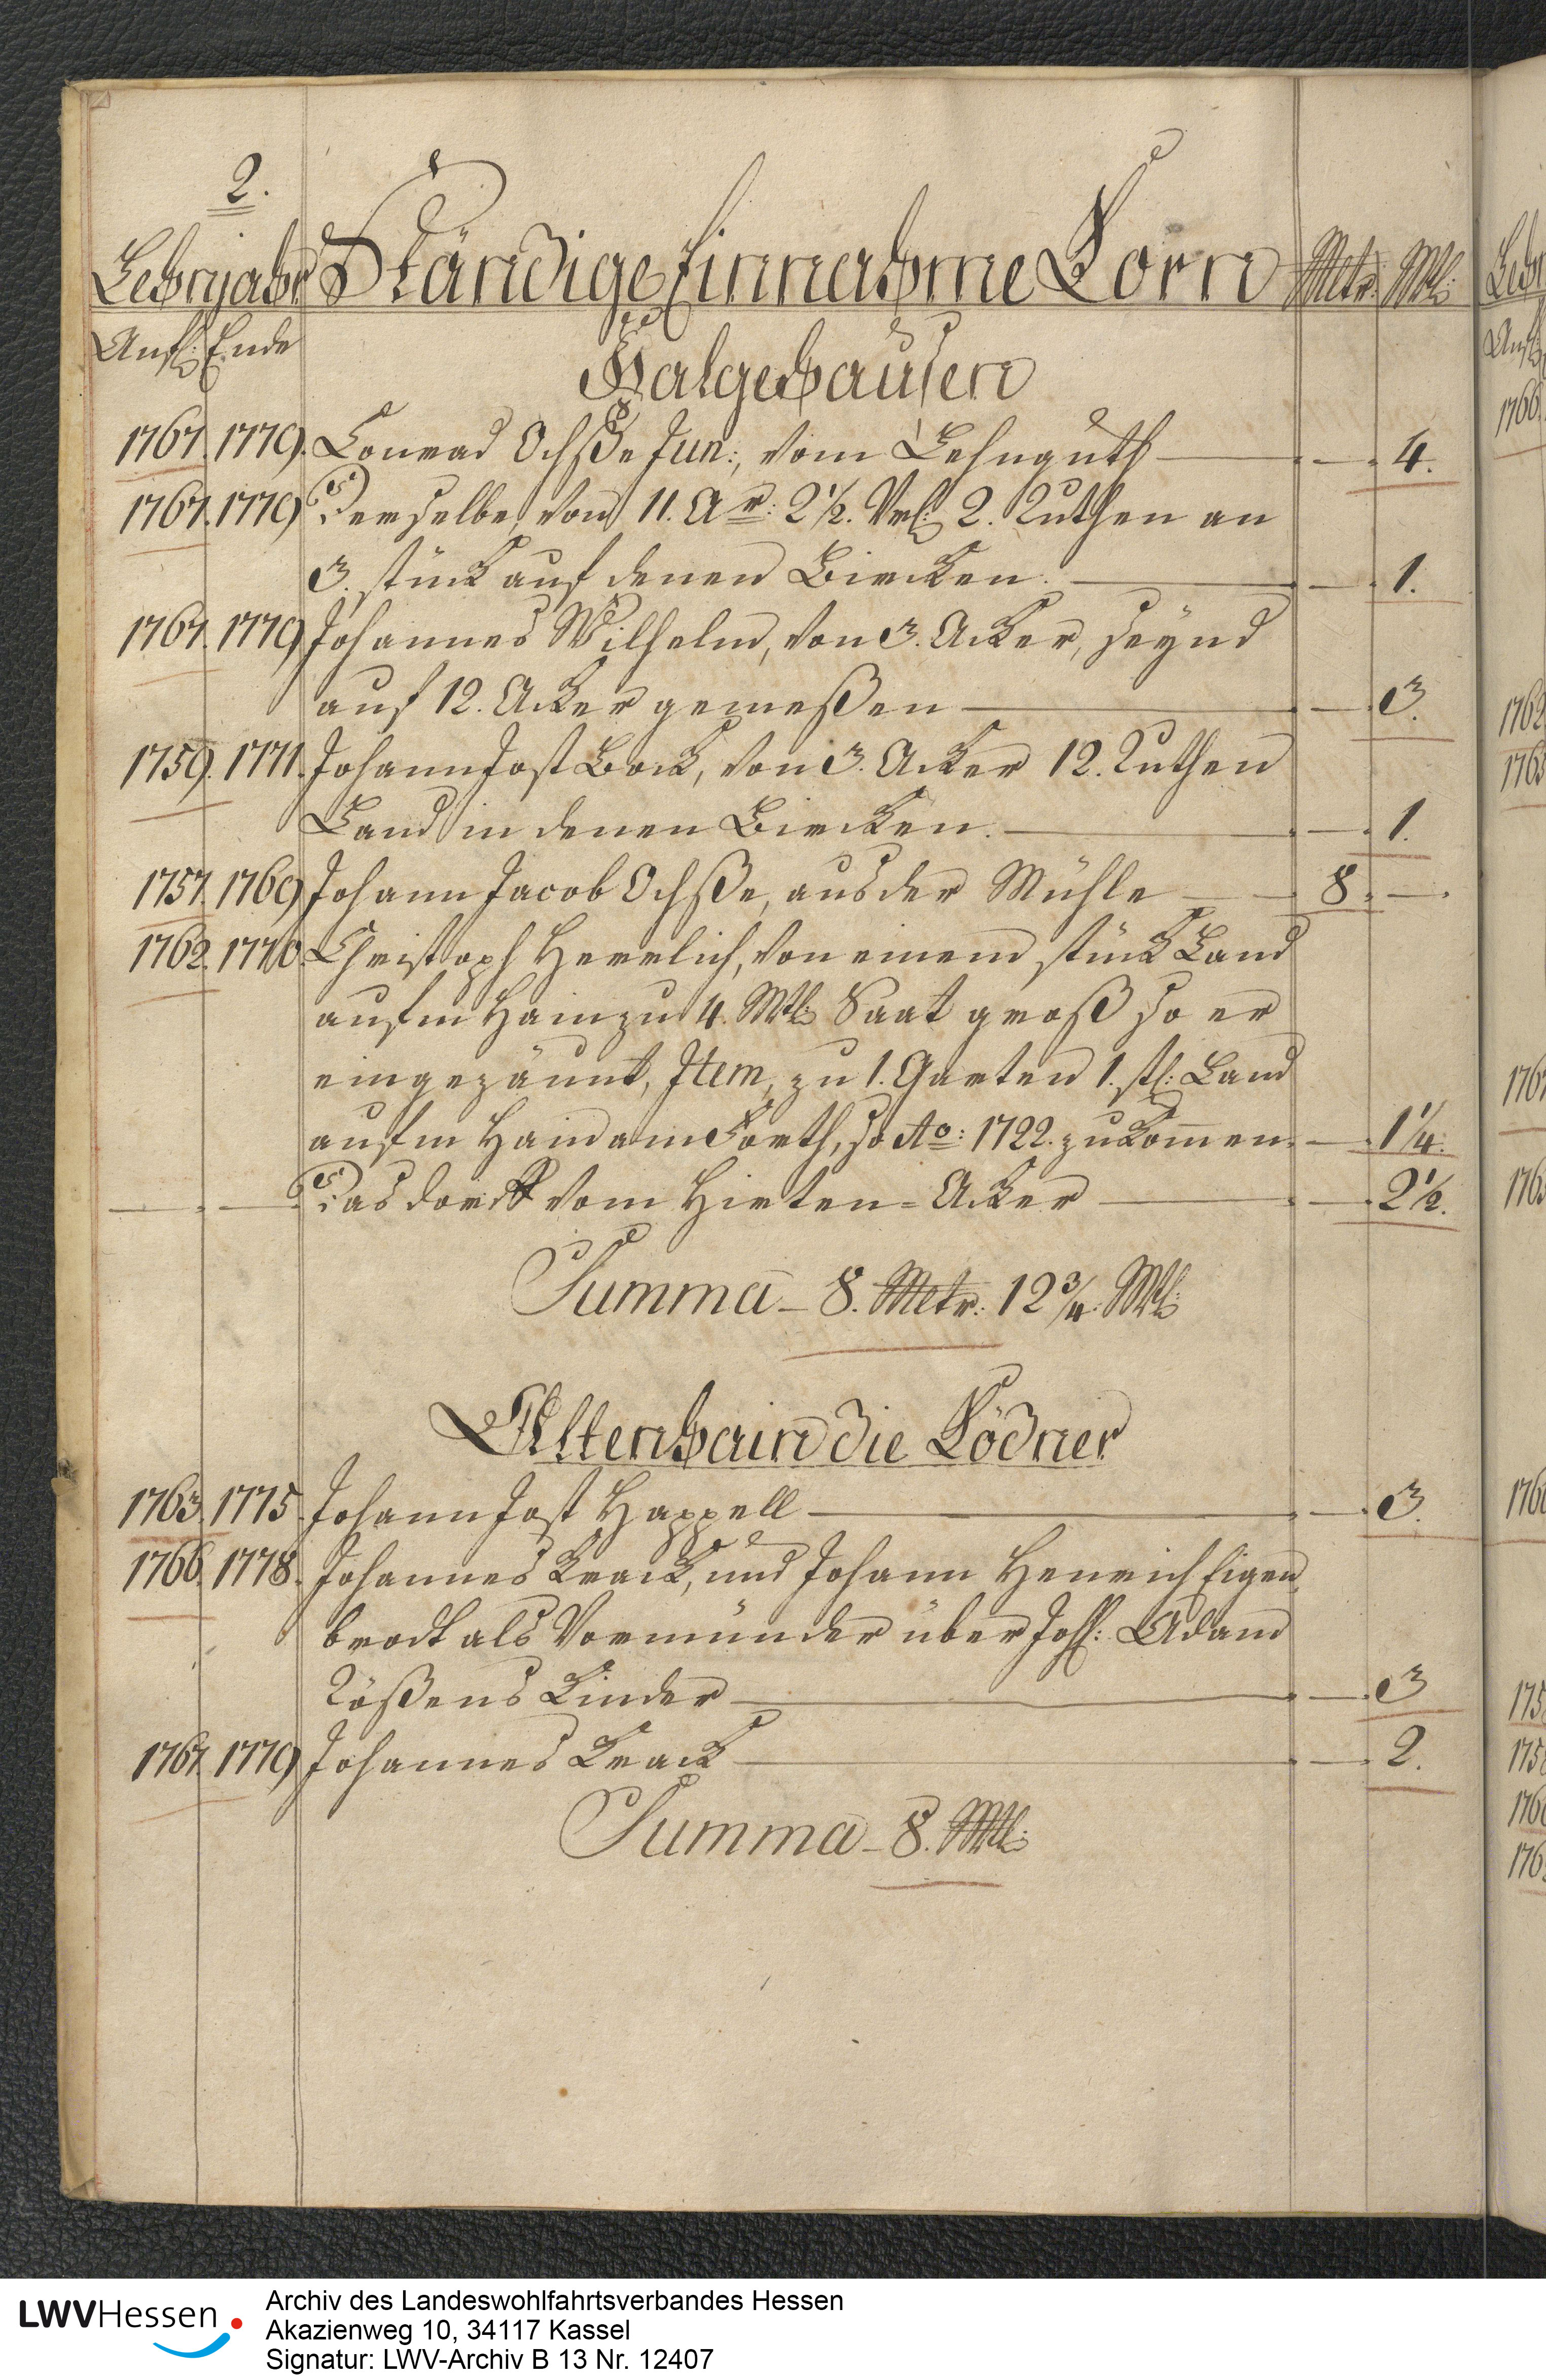 2.
Lehnjahr Ständige Einnahme Korn Mttr: Mtl:
Anf: Ende
Halgehausen
1767. 1779. Conrad Ochße Jun:, vom Lehnguth — — 4.
1767. 1779 Derselbe, von 11. Ar: 2½. Vrl: 2. Ruthen an
3. stück auf denen Bircken. — — 1.
1767. 1779 Johannes Wilhelm, von 3. Acker, seynd
auf 12. Acker gemeßen — — 3.
1759. 1771. Johann Jost Bock, von 3. Acker 12. Ruthen
Land in denen Bircken. — — 1.
1757. 1769 Johann Jacob Ochße, aus der Mühle — 8. —.
1762. 1770. Christoph Herrlich, von einem stück Land
aufm Hain zu 4. Mtl: Saat groß so er
eingezäunt, Item, zu 1. Garten 1. stl: Land
aufm Hain am Forth, so Ao: 1722. zukom̄en. — 1¼.
— — Das dorff vom Hirten-Acker — — 2½.
Summa — 8. Mttr: 12¾. Mtl:
Altenhain die Ködner
1763. 1775. Johann Jost Happell — — 3.
1766. 1778. Johannes Krack, und Johann Henrich Eigen
brodt als Vormünder über Joh: Adam
Rößens Kinder — — 3
1767. 1779 Johannes Krack — — 2.
Summa — 8. Mtl:
Lehn
Anf:
1766
1762
1763
176
LWVHessen
Archiv des Landeswohlfahrtsverbandes Hessen
Akazienweg 10, 34117 Kassel
Signatur: LWV-Archiv B 13 Nr. 12407